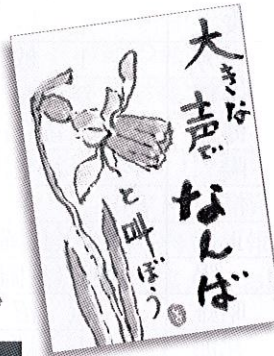 大きな
声で
なんば
と叫ぼう